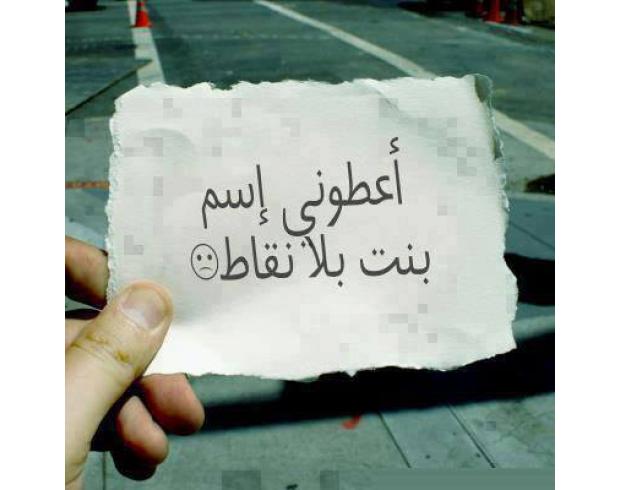 أعطوني إسم
بنت بلا نقاط☹